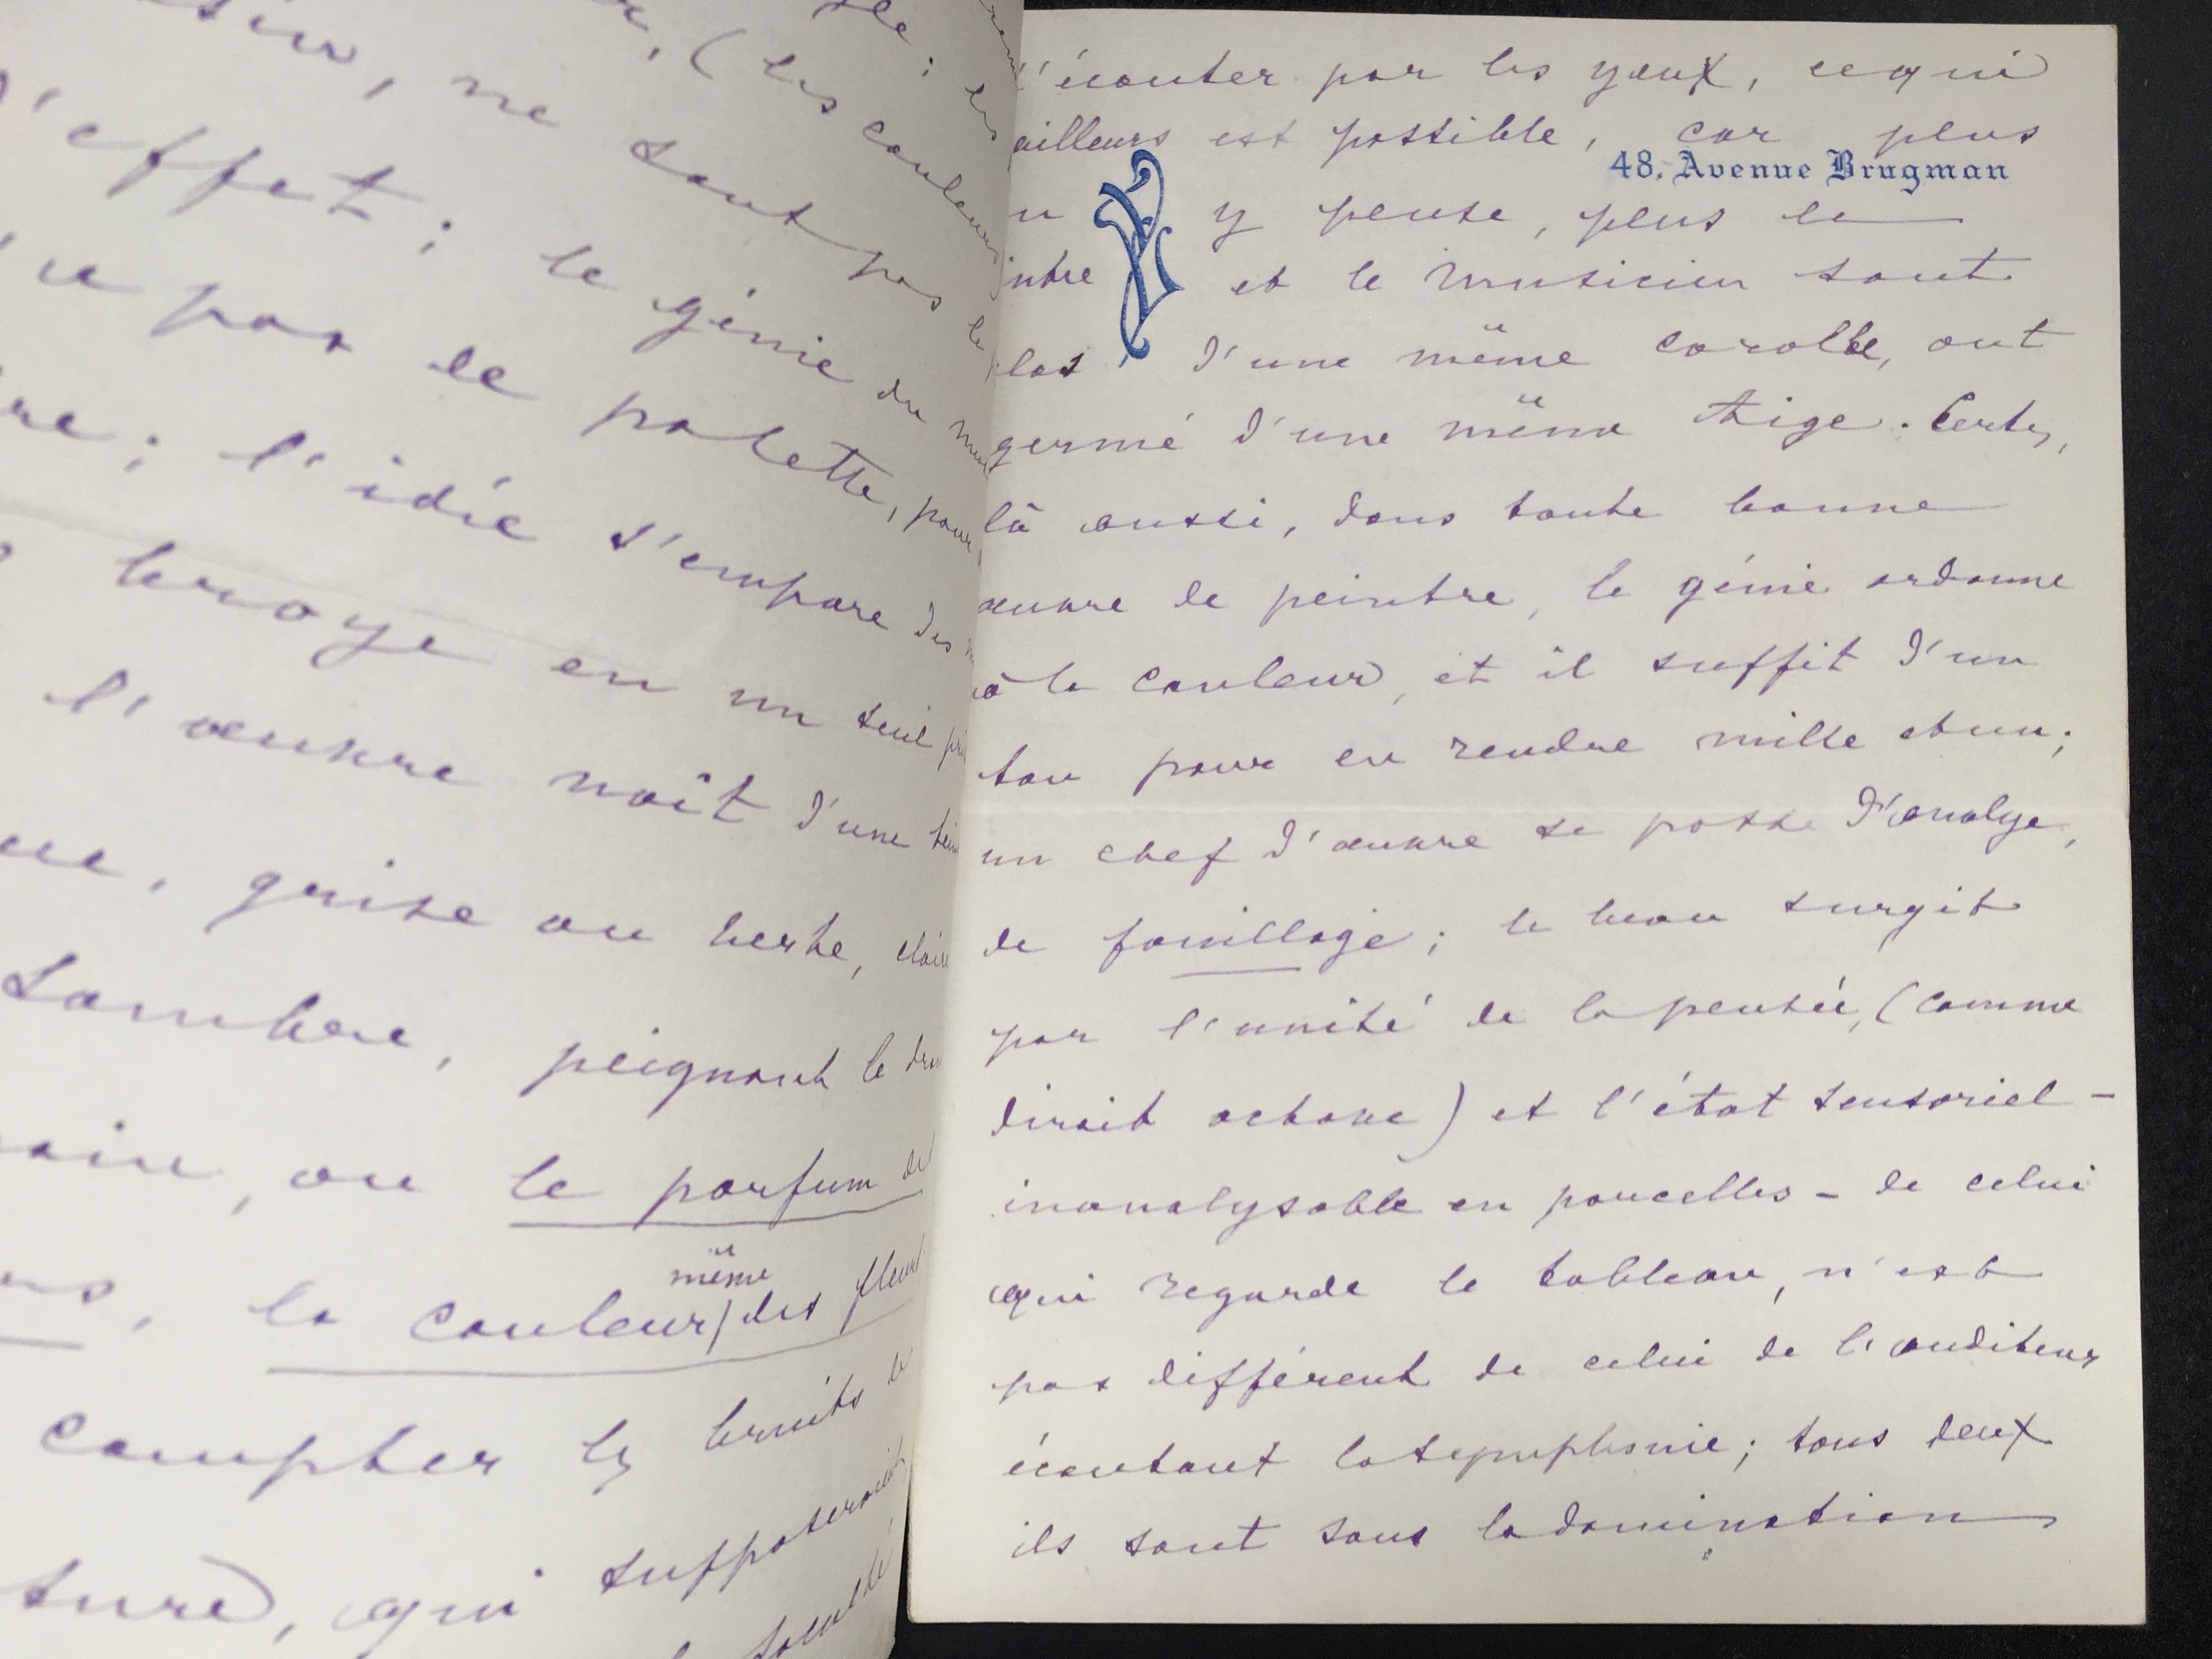 ne sont pas le
(les couleurs
l'effet ; le génie du
pas de palette, pour
l'idée s'empare des
broye en un seul
l'œuvre naît d'une
grise ou verte, claire
sombre, peignant le
ou le parfum de
la couleur même des fleurs
compter les bruits
qui supposerait
l'écouter par les yeux, ce qui
ailleurs est possible, car plus
48, Avenue Brugman
y pense, plus le
intre et le musicien sont
clos d'une même corolle, ont
germé d'une même tige. Certes,
là aussi, dans toute bonne
œuvre de peintre, le génie ordonne
à la couleur, et il suffit d'un
ton pour en rendre mille et un ;
un chef d'œuvre se passe d'analyse,
de fouillage ; le beau surgit
par l'unité de la pensée, (comme
dirait octave) et l'état sensoriel -
inanalysable en parcelles - de celui
qui regarde le tableau, n'est
pas différent de celui de l'auditeur
écoutant la symphonie ; tous deux
ils sont sous la domination